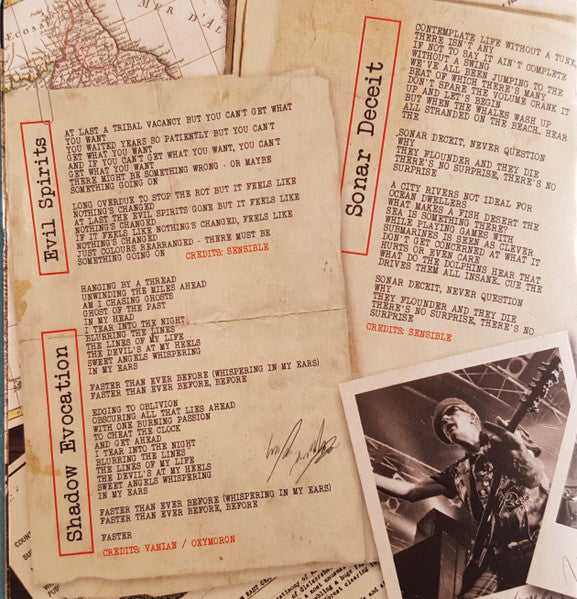 Evil Spirits
AT LAST A TRIBAL VACANCY BUT YOU CAN'T GET WHAT
YOU WANT
YOU WAITED YEARS SO PATIENTLY BUT YOU CAN'T
GET WHAT YOU WANT
AND IF YOU CAN'T GET WHAT YOU WANT, YOU CAN'T
GET WHAT YOU WANT
THERE MIGHT BE SOMETHING WRONG - OR MAYBE
SOMETHING GOING ON
LONG OVERDUE TO STOP THE ROT BUT IT FEELS LIKE
NOTHING'S CHANGED
AT LAST THE EVIL SPIRITS GONE BUT IT FEELS LIKE
NOTHING'S CHANGED
IF IT FEELS LIKE NOTHING'S CHANGED, FEELS LIKE
NOTHING'S CHANGED
JUST COLOURS REARRANGED - THERE MUST BE
SOMETHING GOING ON
CREDITS: SENSIBLE
Shadow Evocation
HANGING BY A THREAD
UNWINDING THE MILES AHEAD
AM I CHASING GHOSTS
GHOST OF THE PAST
IN MY HEAD
I TEAR INTO THE NIGHT
BLURRING THE LINES
THE LINES OF MY LIFE
THE DEVIL'S AT MY HEELS
SWEET ANGELS WHISPERING
IN MY EARS
FASTER THAN EVER BEFORE (WHISPERING IN MY EARS)
FASTER THAN EVER BEFORE, BEFORE
EDGING TO OBLIVION
OBSCURING ALL THAT LIES AHEAD
WITH ONE BURNING PASSION
TO CHEAT THE CLOCK
AND GET AHEAD
I TEAR INTO THE NIGHT
BLURRING THE LINES
THE LINES OF MY LIFE
THE DEVIL'S AT MY HEELS
SWEET ANGELS WHISPERING
IN MY EARS
FASTER THAN EVER BEFORE (WHISPERING IN MY EARS)
FASTER THAN EVER BEFORE, BEFORE
FASTER
CREDITS: VANIAN / OXYMORON
Sonar Deceit
CONTEMPLATE LIFE WITHOUT A TUNE
THERE ISN'T ANY
IF NOT TO SAY IT AIN'T COMPLETE
WITHOUT A SWING
WE'VE ALL BEEN JUMPING TO THE
BEAT OF WHICH THERE'S MANY
DON'T SPARE THE VOLUME CRANK IT
UP AND LET'S BEGIN
BUT WHEN THE WHALES WASH UP
ALL STRANDED ON THE BEACH. HEAR
THE
SONAR DECEIT, NEVER QUESTION
WHY
THEY FLOUNDER AND THEY DIE
THERE'S NO SURPRISE, THERE'S NO
SURPRISE
A CITY RIVERS NOT IDEAL FOR
OCEAN DWELLERS
WHAT MAKES A FISH DESERT THE
SEA IS SOMETHING THERE?
WHILE PLAYING GAMES WITH
SUBMARINES IS SEEN AS CLEVER
DON'T GET CONCERNED AT WHAT IT
HURTS OR EVEN CARE
WHAT DO THE DOLPHINS HEAR THAT
DRIVES THEM ALL INSANE. CUE THE
SONAR DECEIT, NEVER QUESTION
WHY
THEY FLOUNDER AND THEY DIE
THERE'S NO SURPRISE, THERE'S NO
SURPRISE
CREDITS: SENSIBLE